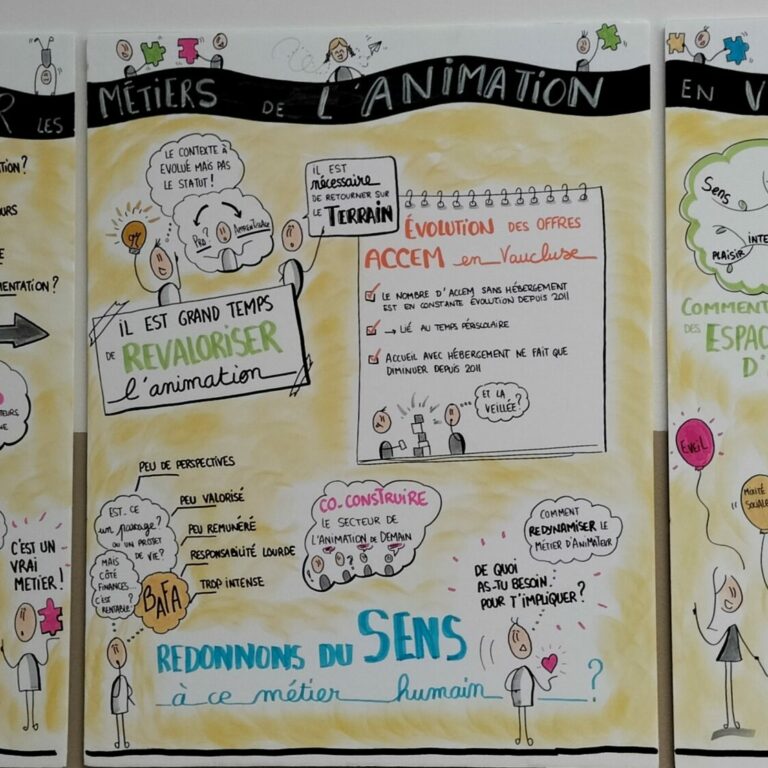 R LES
MÉTIERS DE L'ANIMATION
EN V
TION?
OURS
E
MENTATION?
TEURS
NE
C'EST UN
VRAI
METIER!
LE CONTEXTE A
EVOLUÉ MAIS PAS
LE STATUT!
PRO? APPRENTISSAGE
IL EST
nécessaire
DE RETOURNER SUR
LE TERRAIN
IL EST GRAND TEMPS
DE REVALORISER
l'animation
ÉVOLUTION DES OFFRES
ACCEM en Vaucluse
LE NOMBRE D'ACCEM SANS HÉBERGEMENT
EST EN CONSTANTE ÉVOLUTION DEPUIS 2011
→ LIÉ AU TEMPS PÉRISCOLAIRE
ACCUEIL AVEC HÉBERGEMENT NE FAIT QUE
DIMINUER DEPUIS 2011
ET LA
VEILLÉE?
PEU DE PERSPECTIVES
PEU VALORISÉ
PEU REMUNÉRÉ
RESPONSABILITÉ LOURDE
TROP INTENSE
EST-CE
un passage?
OU UN PROJET
DE VIE?
MAIS
CÔTÉ
FINANCES...
C'EST
RENTABLE?
BAFA
CO-CONSTRUIRE
LE SECTEUR DE
L'ANIMATION DE DEMAIN
?
COMMENT
REDYNAMISER LE
MÉTIER D'ANIMATEUR
DE QUOI
AS-TU BESOIN
POUR T'IMPLIQUER?
REDONNONS DU SENS
à ce métier humain ?
Sens
INTE
PLAISIR
COMMENT
DES ESPAC
D'
EVEIL
MIXITÉ
SOCIALE